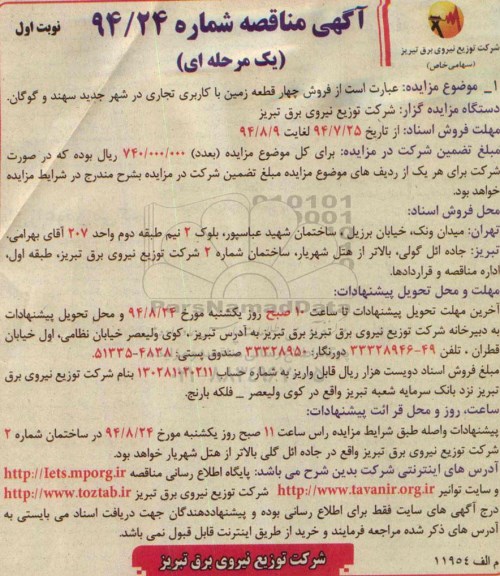 آگهی مناقصه شماره ۹۴/۲۴
نوبت اول
(یک مرحله ای)
شرکت توزیع نیروی برق تبریز
(سهامی خاص)
۱_ موضوع مزایده: عبارت است از فروش چهار قطعه زمین با کاربری تجاری در شهر جدید سهند و گوگان.
دستگاه مزایده گزار: شرکت توزیع نیروی برق تبریز
مهلت فروش اسناد: از تاریخ ۹۴/۷/۲۵ لغایت ۹۴/۸/۹
مبلغ تضمین شرکت در مزایده: برای کل موضوع مزایده (بعدد) ۷۴۰/۰۰۰/۰۰۰ ریال بوده که در صورت
شرکت برای هر یک از ردیف های موضوع مزایده مبلغ تضمین شرکت در مزایده بشرح مندرج در شرایط مزایده
خواهد بود.
محل فروش اسناد:
تهران: میدان ونک، خیابان برزیل ، ساختمان شهید عباسپور، بلوک ۲ نیم طبقه دوم واحد ۲۰۷ آقای بهرامی،
تبریز: جاده ائل گولی، بالاتر از هتل شهریار، ساختمان شماره ۲ شرکت توزیع نیروی برق تبریز، طبقه اول،
اداره مناقصه و قراردادها.
مهلت و محل تحویل پیشنهادات:
آخرین مهلت تحویل پیشنهادات تا ساعت ۱۰ صبح روز یکشنبه مورخ ۹۴/۸/۲۴ و محل تحویل پیشنهادات
به دبیرخانه شرکت توزیع نیروی برق تبریز برق تبریز به آدرس تبریز ، کوی ولیعصر خیابان نظامی، اول خیابان
قطران ، تلفن ۴۹-۳۳۳۲۸۹۴۶ دورنگار: ۳۳۳۲۸۹۵۰ صندوق پستی: ۴۸۳۸-۵۱۳۳۵
مبلغ فروش اسناد دویست هزار ریال قابل واریز به شماره حساب ۱۳۰۲۸۱۰۲۰۲۱۱ بنام شرکت توزیع نیروی برق
تبریز نزد بانک سرمایه شعبه تبریز واقع در کوی ولیعصر _ فلکه بارنج.
ساعت، روز و محل قرائت پیشنهادات:
پیشنهادات واصله طبق شرایط مزایده راس ساعت ۱۱ صبح روز یکشنبه مورخ ۹۴/۸/۲۴ در ساختمان شماره ۲
شرکت توزیع نیروی برق تبریز واقع در جاده ائل گلی بالاتر از هتل شهریار خواهد بود.
آدرس های اینترنتی شرکت بدین شرح می باشد: پایگاه اطلاع رسانی مناقصه http://Iets.mporg.ir
و سایت توانیر http://www.tavanir.org.ir شرکت توزیع نیروی برق تبریز http://www.toztab.ir
درج آگهی های سایت فقط برای اطلاع رسانی بوده و پیشنهاددهندگان جهت دریافت اسناد می بایستی به
آدرس های ذکر شده مراجعه فرمایند و خرید از طریق اینترنت قابل قبول نمی باشد.
م الف ۱۱۹۵۴
شرکت توزیع نیروی برق تبریز
ParsNamadData